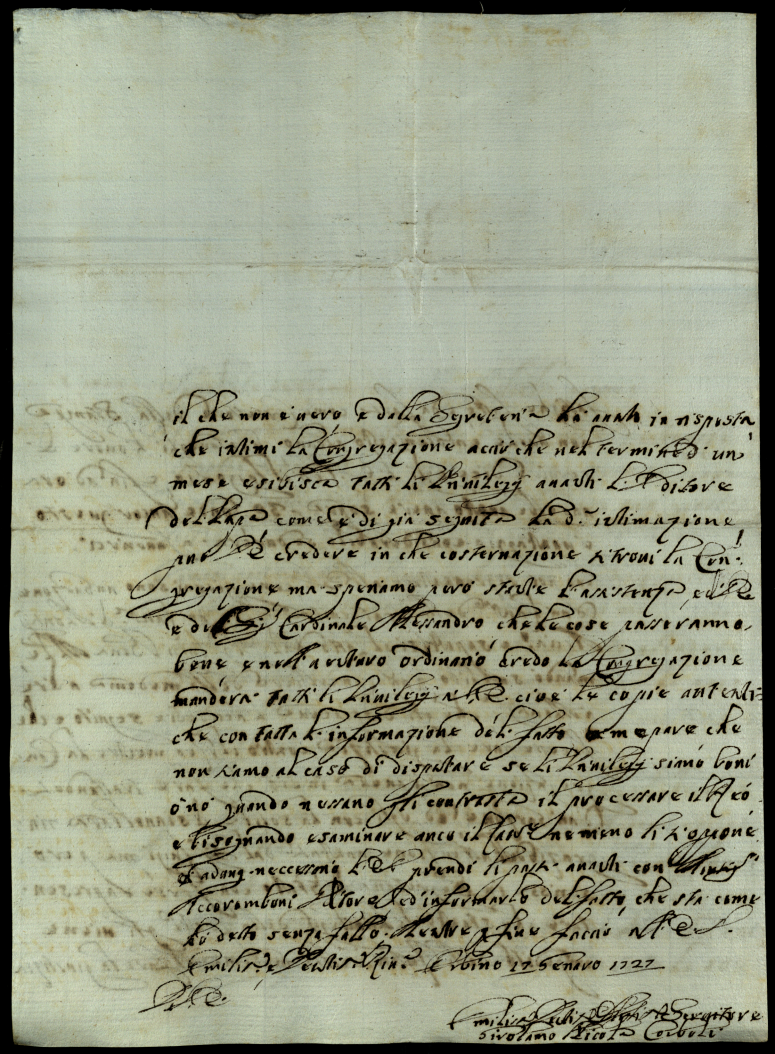 il che non è vero e dalla Segreteria ha avuto in risposta
che intimi la Congregazione acciò che nel termine d'un
mese esibisca tutti li Privilegj avanti l'Editore
del Papa come è di già seguita la d.ª intimazione
può V.E. credere in che costernazione si trovi la Con-
gregazione ma speriamo però stante l'assistenza
e del Sig.r Cardinale Alessandro che le cose passeranno
bene e nell'a ordinario credo la Congregazione
manderà tutti li Privilegj a V.E. cioè le copie autenti=
che con tutta l'informazione del fatto e me pare che
non siamo al caso di disputare se li Privilegj siano boni
o nò quando nessuno gli contrasta il processare il Reo
e bisognando esaminare anco il nemeno li si oppone
è neccessario V.E. prendi li passi avanti con
Accoromboni ed informarlo del fatto che sta come
hò detto senza fallo. Mentre p fine faccio all'E.V.
Urbino 17 Genaro 1727
D. V.E.
Servitore
Girolamo Nicola Corboli